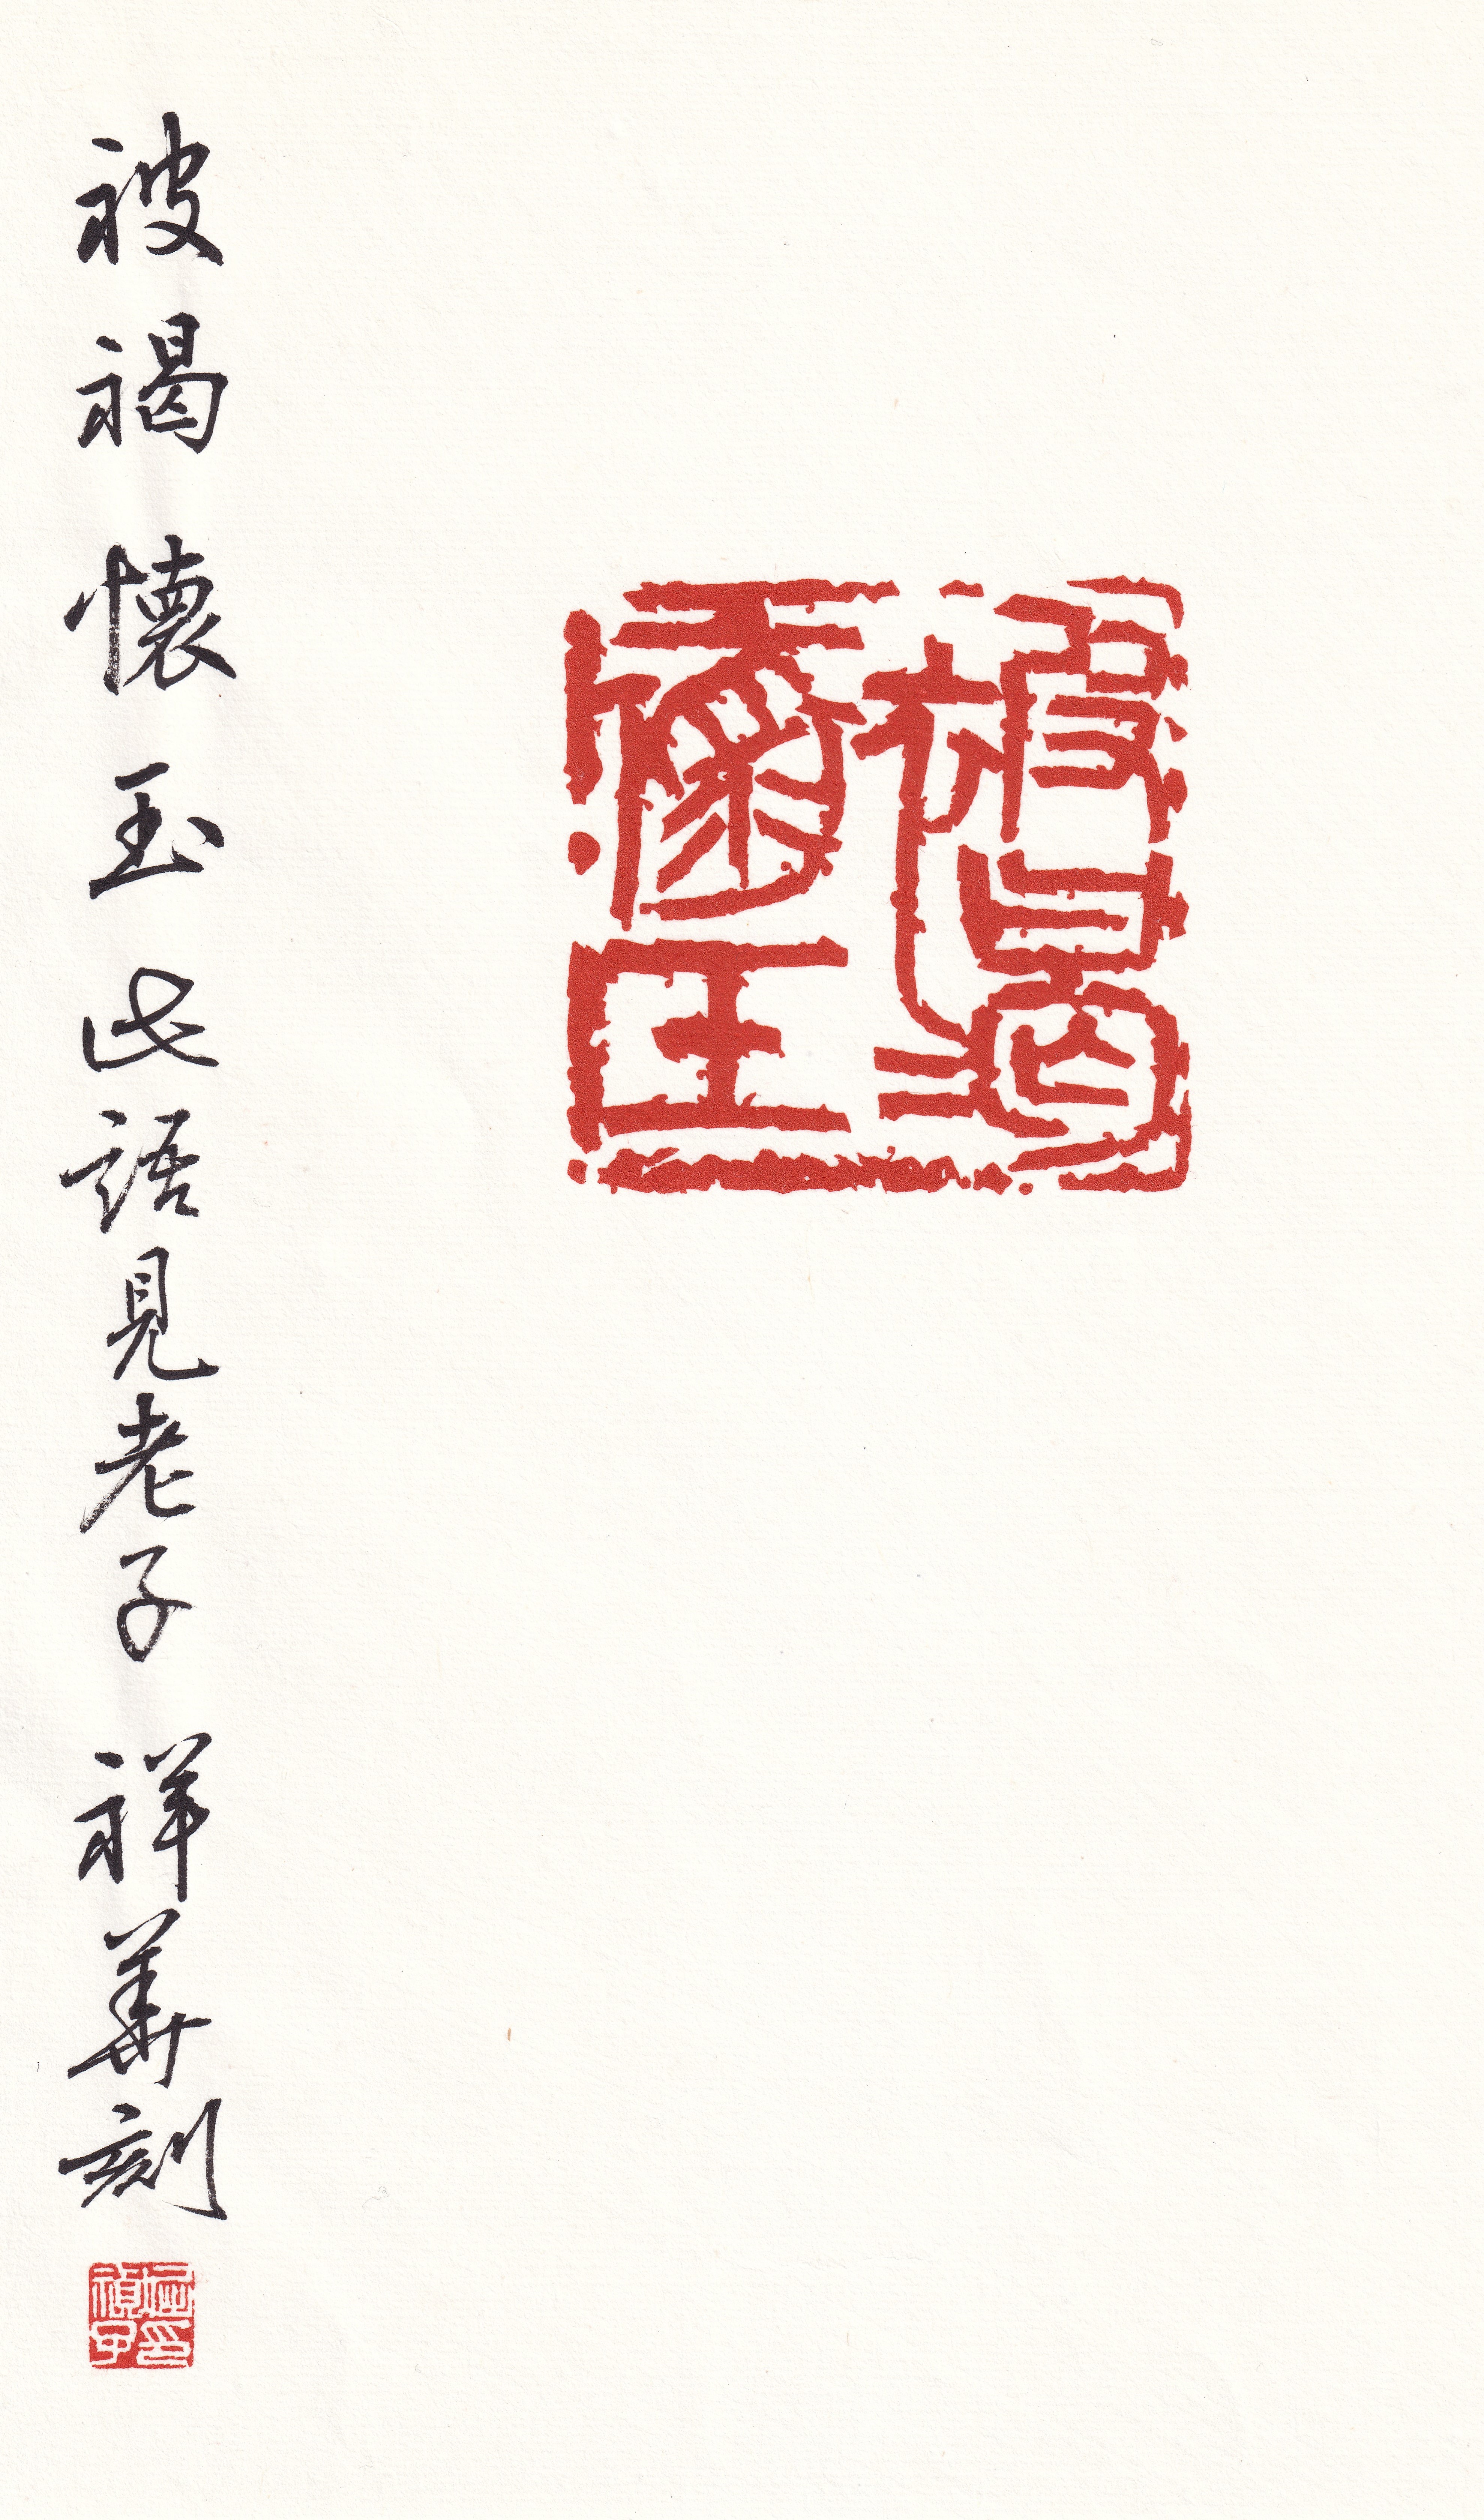 被褐
懷玉
被褐懷玉此語見老子 祥華刻